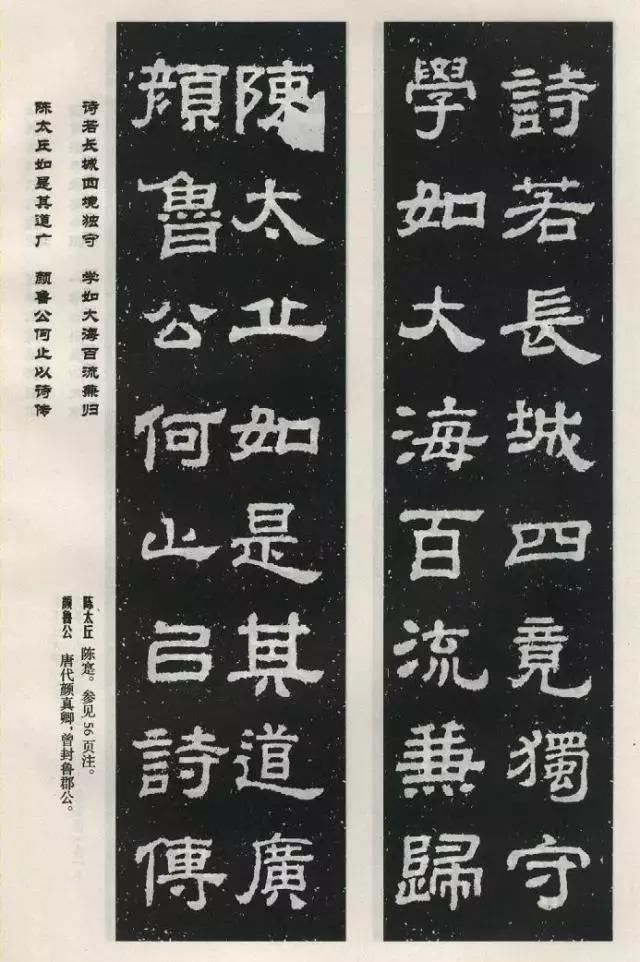 詩若長城四竟獨守
學如大海百流兼歸
陳太丘如是其道廣
顔魯公何止㠯詩傳
诗若长城四境独守 学如大海百流兼归
陈太丘如是其道广 颜鲁公何止以诗传
陈太丘 陈寔。参见56页注。
颜鲁公 唐代颜真卿，曾封鲁郡公。